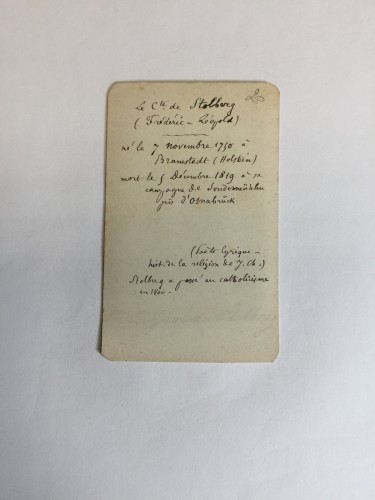 Le Cte de Stolberg
(Frédéric-Léopold)
né le 7 novembre 1750 à
Bramstedt (Holstein)
mort le 5 Décembre 1819 à sa
campagne de Sondermühlen
près d'Osnabrück
(Poète lyrique -
hist. de la religion de J. Ch.)
Stolberg a passé au catholicisme
en 1800 -